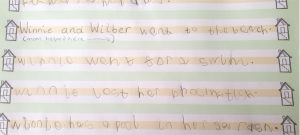 Winnie and Wilber went to the beach.
(mum helped here →)
winnie went for a swim.
winnie lost her
winnie has a pool in her garden.